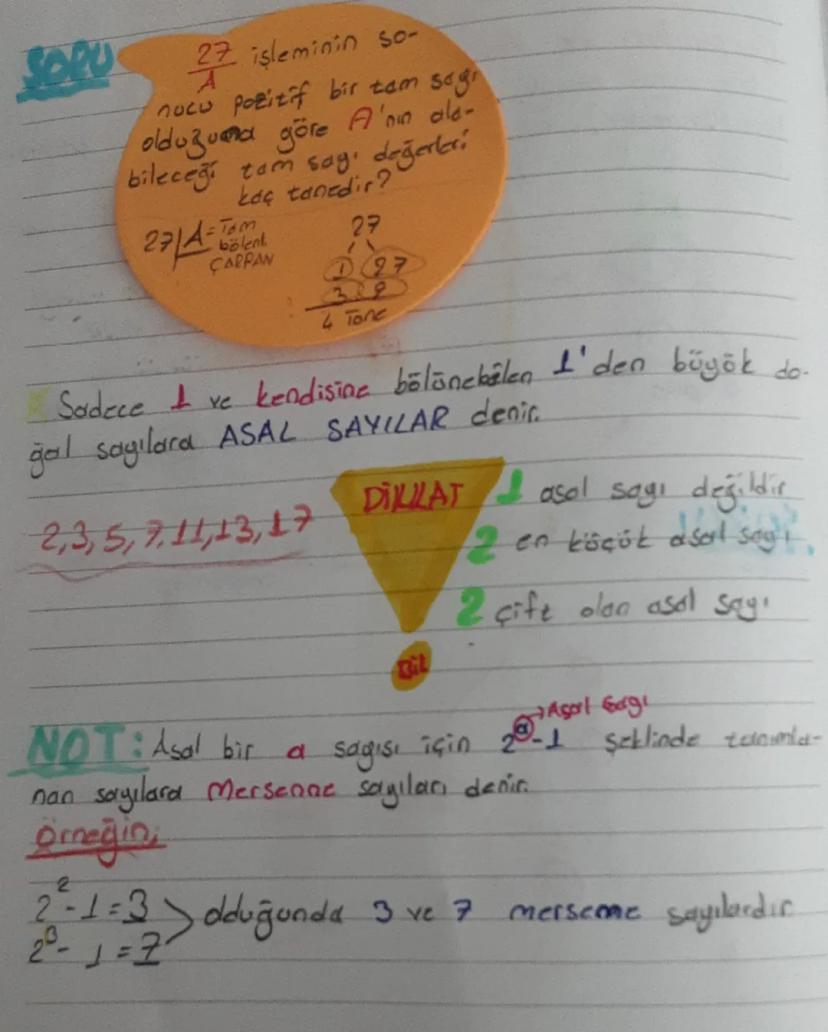 SORU
27/A işleminin so-
nucu pozitif bir tam sayı
olduğuna göre A'nın ala-
bileceği tam sayı değerleri
kaç tanedir?
27 | A = Tam
bölen
ÇARPAN
27
1 27
3 9
4 Tane
Sadece 1 ve kendisine bölünebilen 1'den büyük do-
ğal sayılara ASAL SAYILAR denir.
DİKKAT
1 asal sayı değildir
2,3,5,7,11,13,17
2 en küçük asal sayı
2 çift olan asal sayı
Bil
→Asal Sayı
NOT: Asal bir a sayısı için 2ᵃ-1 şeklinde tanımla-
nan sayılara Mersenne sayıları denir.
Örneğin;
2²-1=3
2³-1=7
olduğunda 3 ve 7 mersenne sayılardır